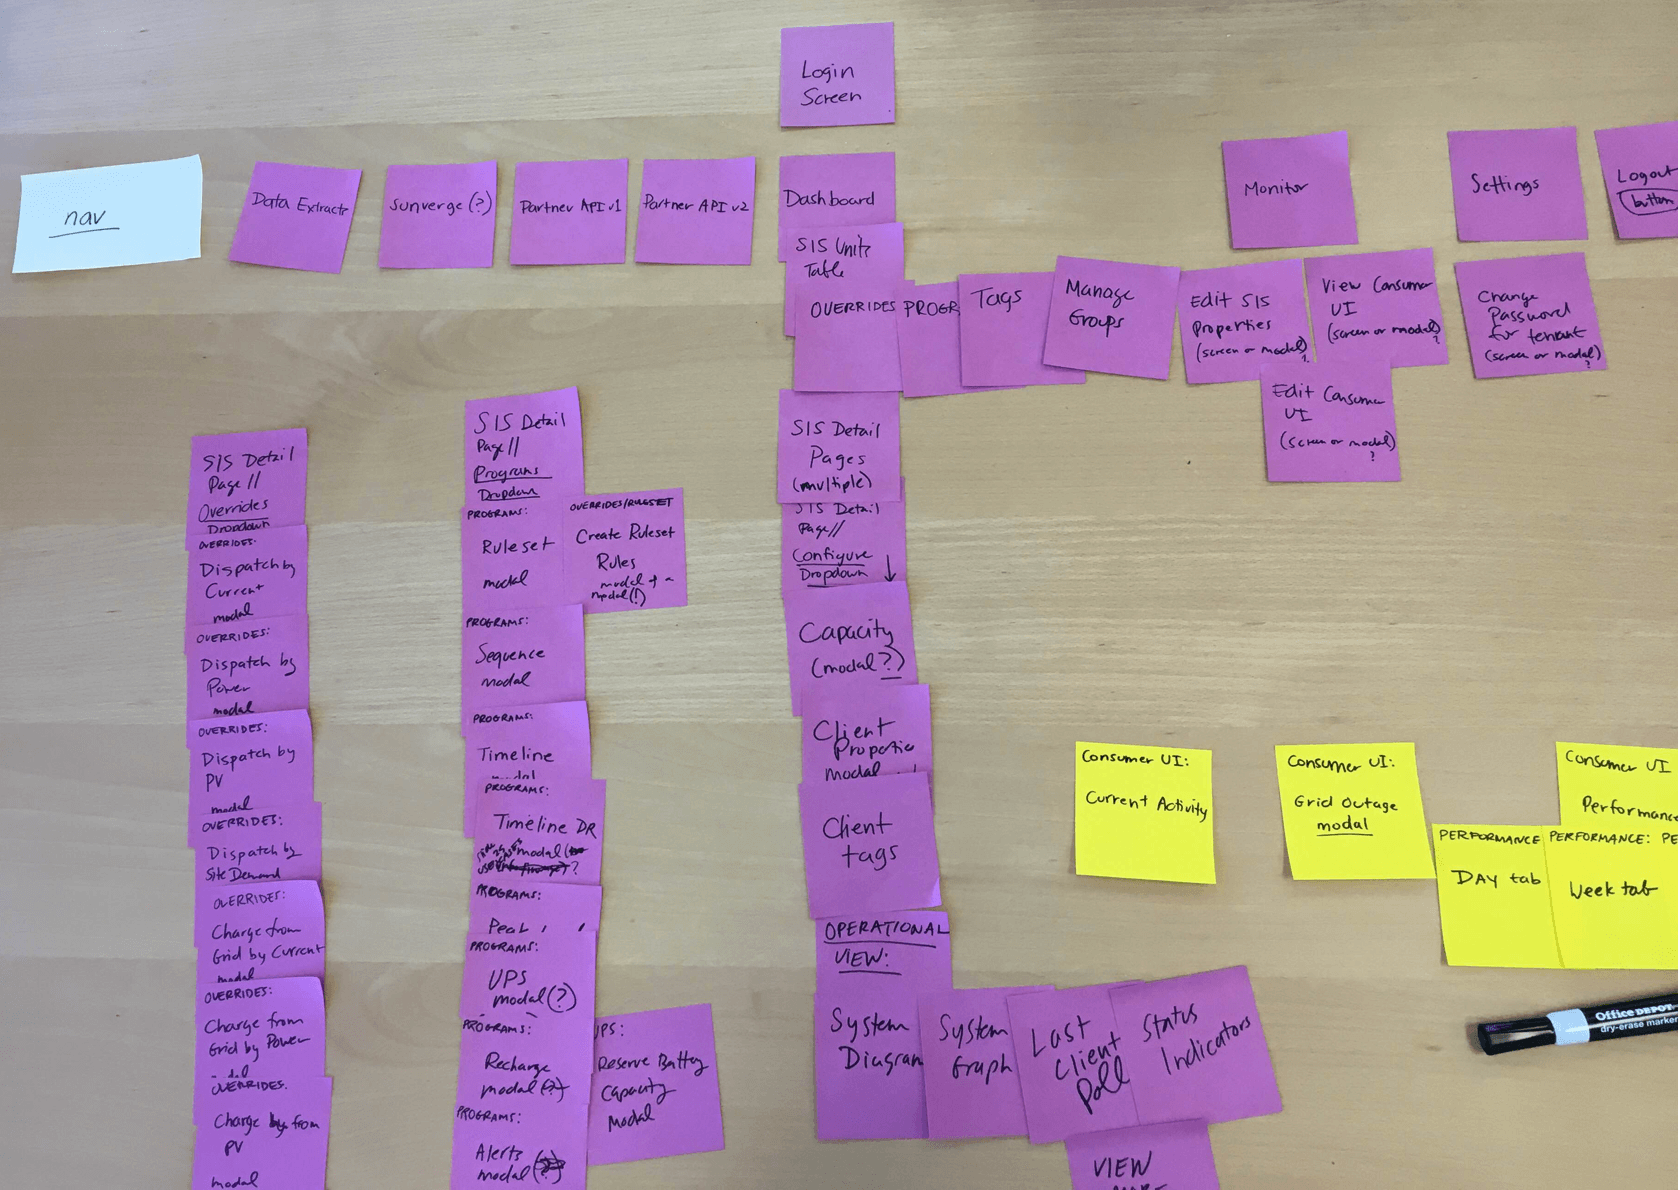 Login
Screen
nav
Data Extracts
Sunverge (?)
Partner API v1
Partner API v2
Dashboard
Monitor
Settings
Logout
button
SIS Units
Table
OVERRIDES
PROGR
Tags
Manage
Groups
Edit SIS
Properties
(screen or modal)
?
View Consumer
UI
(screen or modal)
?
Change
Password
for tenant
(screen or modal)
?
Edit Consumer
UI
(screen or modal)
?
SIS Detail
Page//
Overrides
Dropdown
OVERRIDES:
Dispatch by
Current
modal
OVERRIDES:
Dispatch by
Power
modal
OVERRIDES:
Dispatch by
PV
modal
OVERRIDES:
Dispatch by
Site Demand
OVERRIDES:
Charge from
Grid by Current
modal
OVERRIDES:
Charge from
Grid by Power
OVERRIDES:
Charge from
PV
modal
SIS Detail
Page//
Programs
Dropdown
PROGRAMS:
Ruleset
modal
OVERRIDES/RULESET
Create Ruleset
Rules
modal + a
modal(!)
PROGRAMS:
Sequence
modal
PROGRAMS:
Timeline
modal
PROGRAMS:
Timeline DR
modal
?
PROGRAMS:
Peak
PROGRAMS:
UPS
modal (?)
PROGRAMS:
Recharge
modal (?)
UPS:
Reserve Battery
Capacity
Modal
PROGRAMS:
Alerts
modal
SIS Detail
Pages
(multiple)
SIS Detail
Page//
Configure
Dropdown ↓
Capacity
(modal ?)
Client
Properties
modal
Client
tags
OPERATIONAL
VIEW:
System
Diagram
System
Graph
Last
Client
Poll
Status
Indicators
VIEW
Consumer UI:
Current Activity
Consumer UI:
Grid Outage
modal
Consumer UI
Performance
PERFORMANCE
DAY tab
PERFORMANCE:
Week tab
PE
Office DEPOT
dry-erase marker